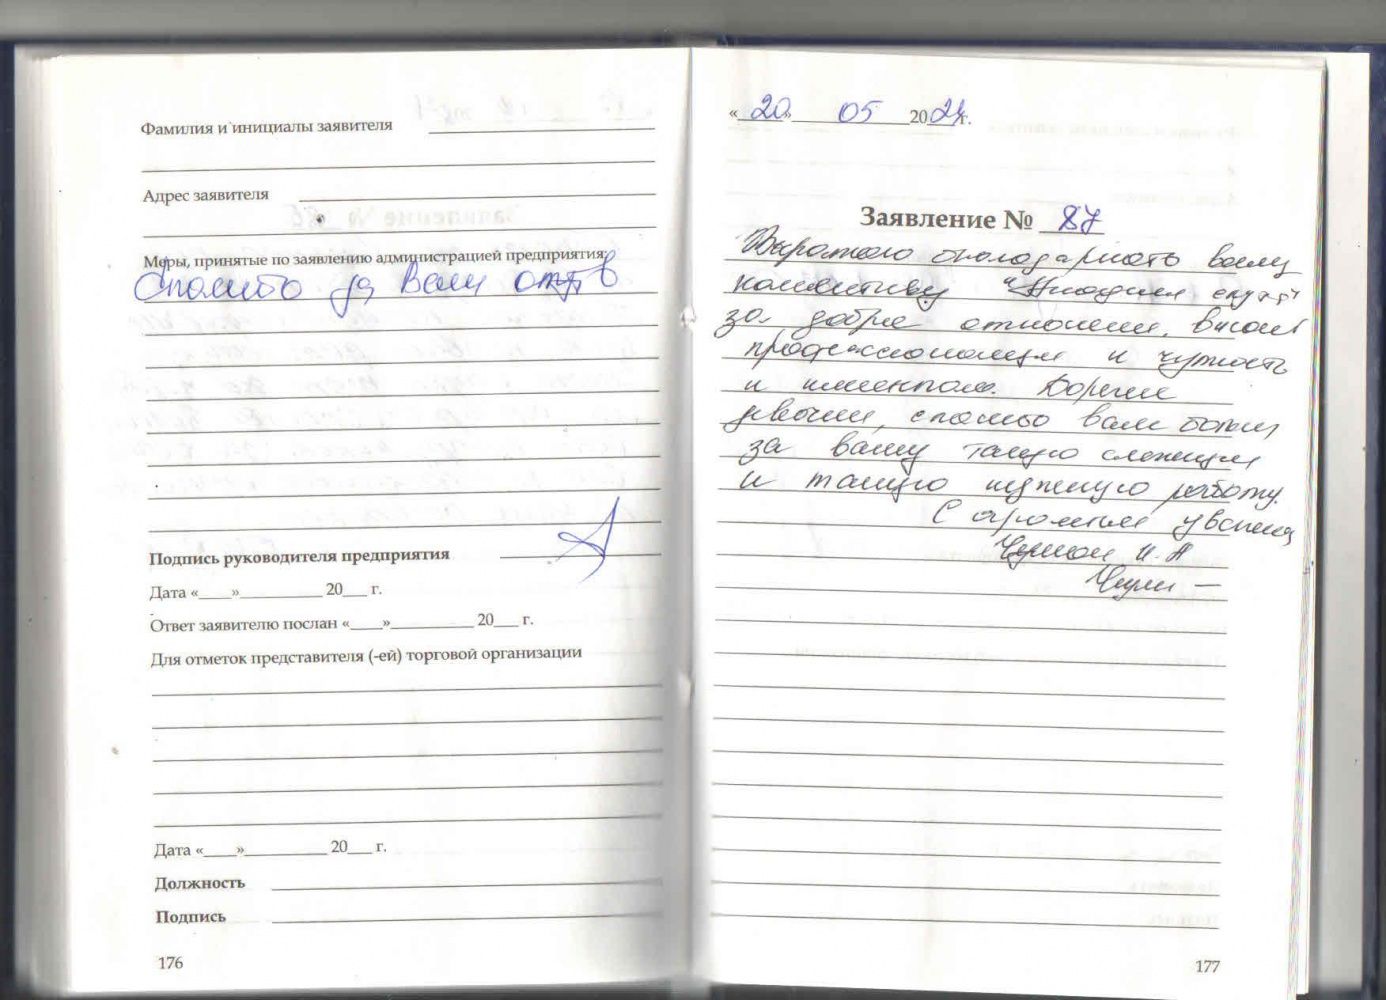 Фамилия и инициалы заявителя
Адрес заявителя
Меры, принятые по заявлению администрацией предприятия:
Спасибо за Ваш отзыв
Подпись руководителя предприятия
Дата «____»__________ 20___ г.
Ответ заявителю послан «____»__________ 20___ г.
Для отметок представителя (-ей) торговой организации
Дата «____»__________ 20___ г.
Должность
Подпись
176
« 20 » 05 2024 г.
Заявление № 87
Выражаю благодарность всему
коллективу
за доброе отношение, высокий
профессионализм и чуткость
к клиентам. Дорогие
девочки, спасибо вам большое
за вашу такую сложную
и такую нужную работу.
С огромным уважением
177